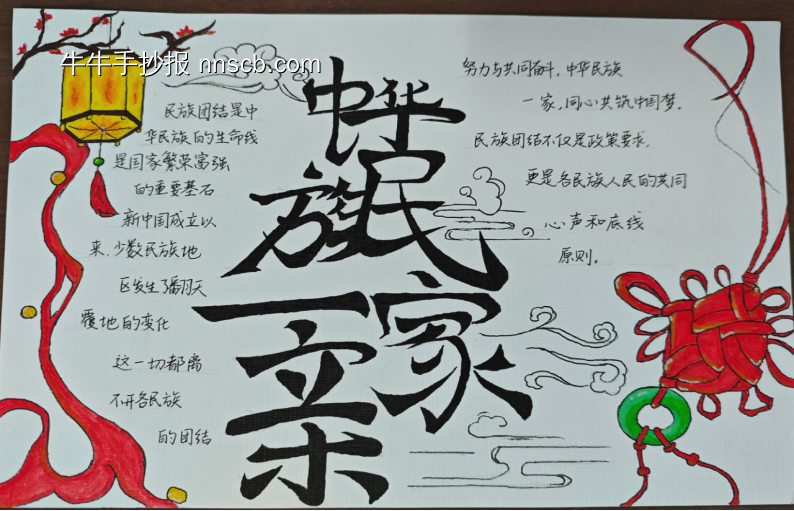 牛牛手抄报 nnscb.com
中华
民族
一家亲
民族团结是中
华民族的生命线
是国家繁荣富强
的重要基石
新中国成立以
来,少数民族地
区发生了翻天
覆地的变化
这一切都离
不开各民族
的团结
努力与共同奋斗,中华民族
一家,同心共筑中国梦。
民族团结不仅是政策要求,
更是各民族人民的共同
心声和底线
原则。